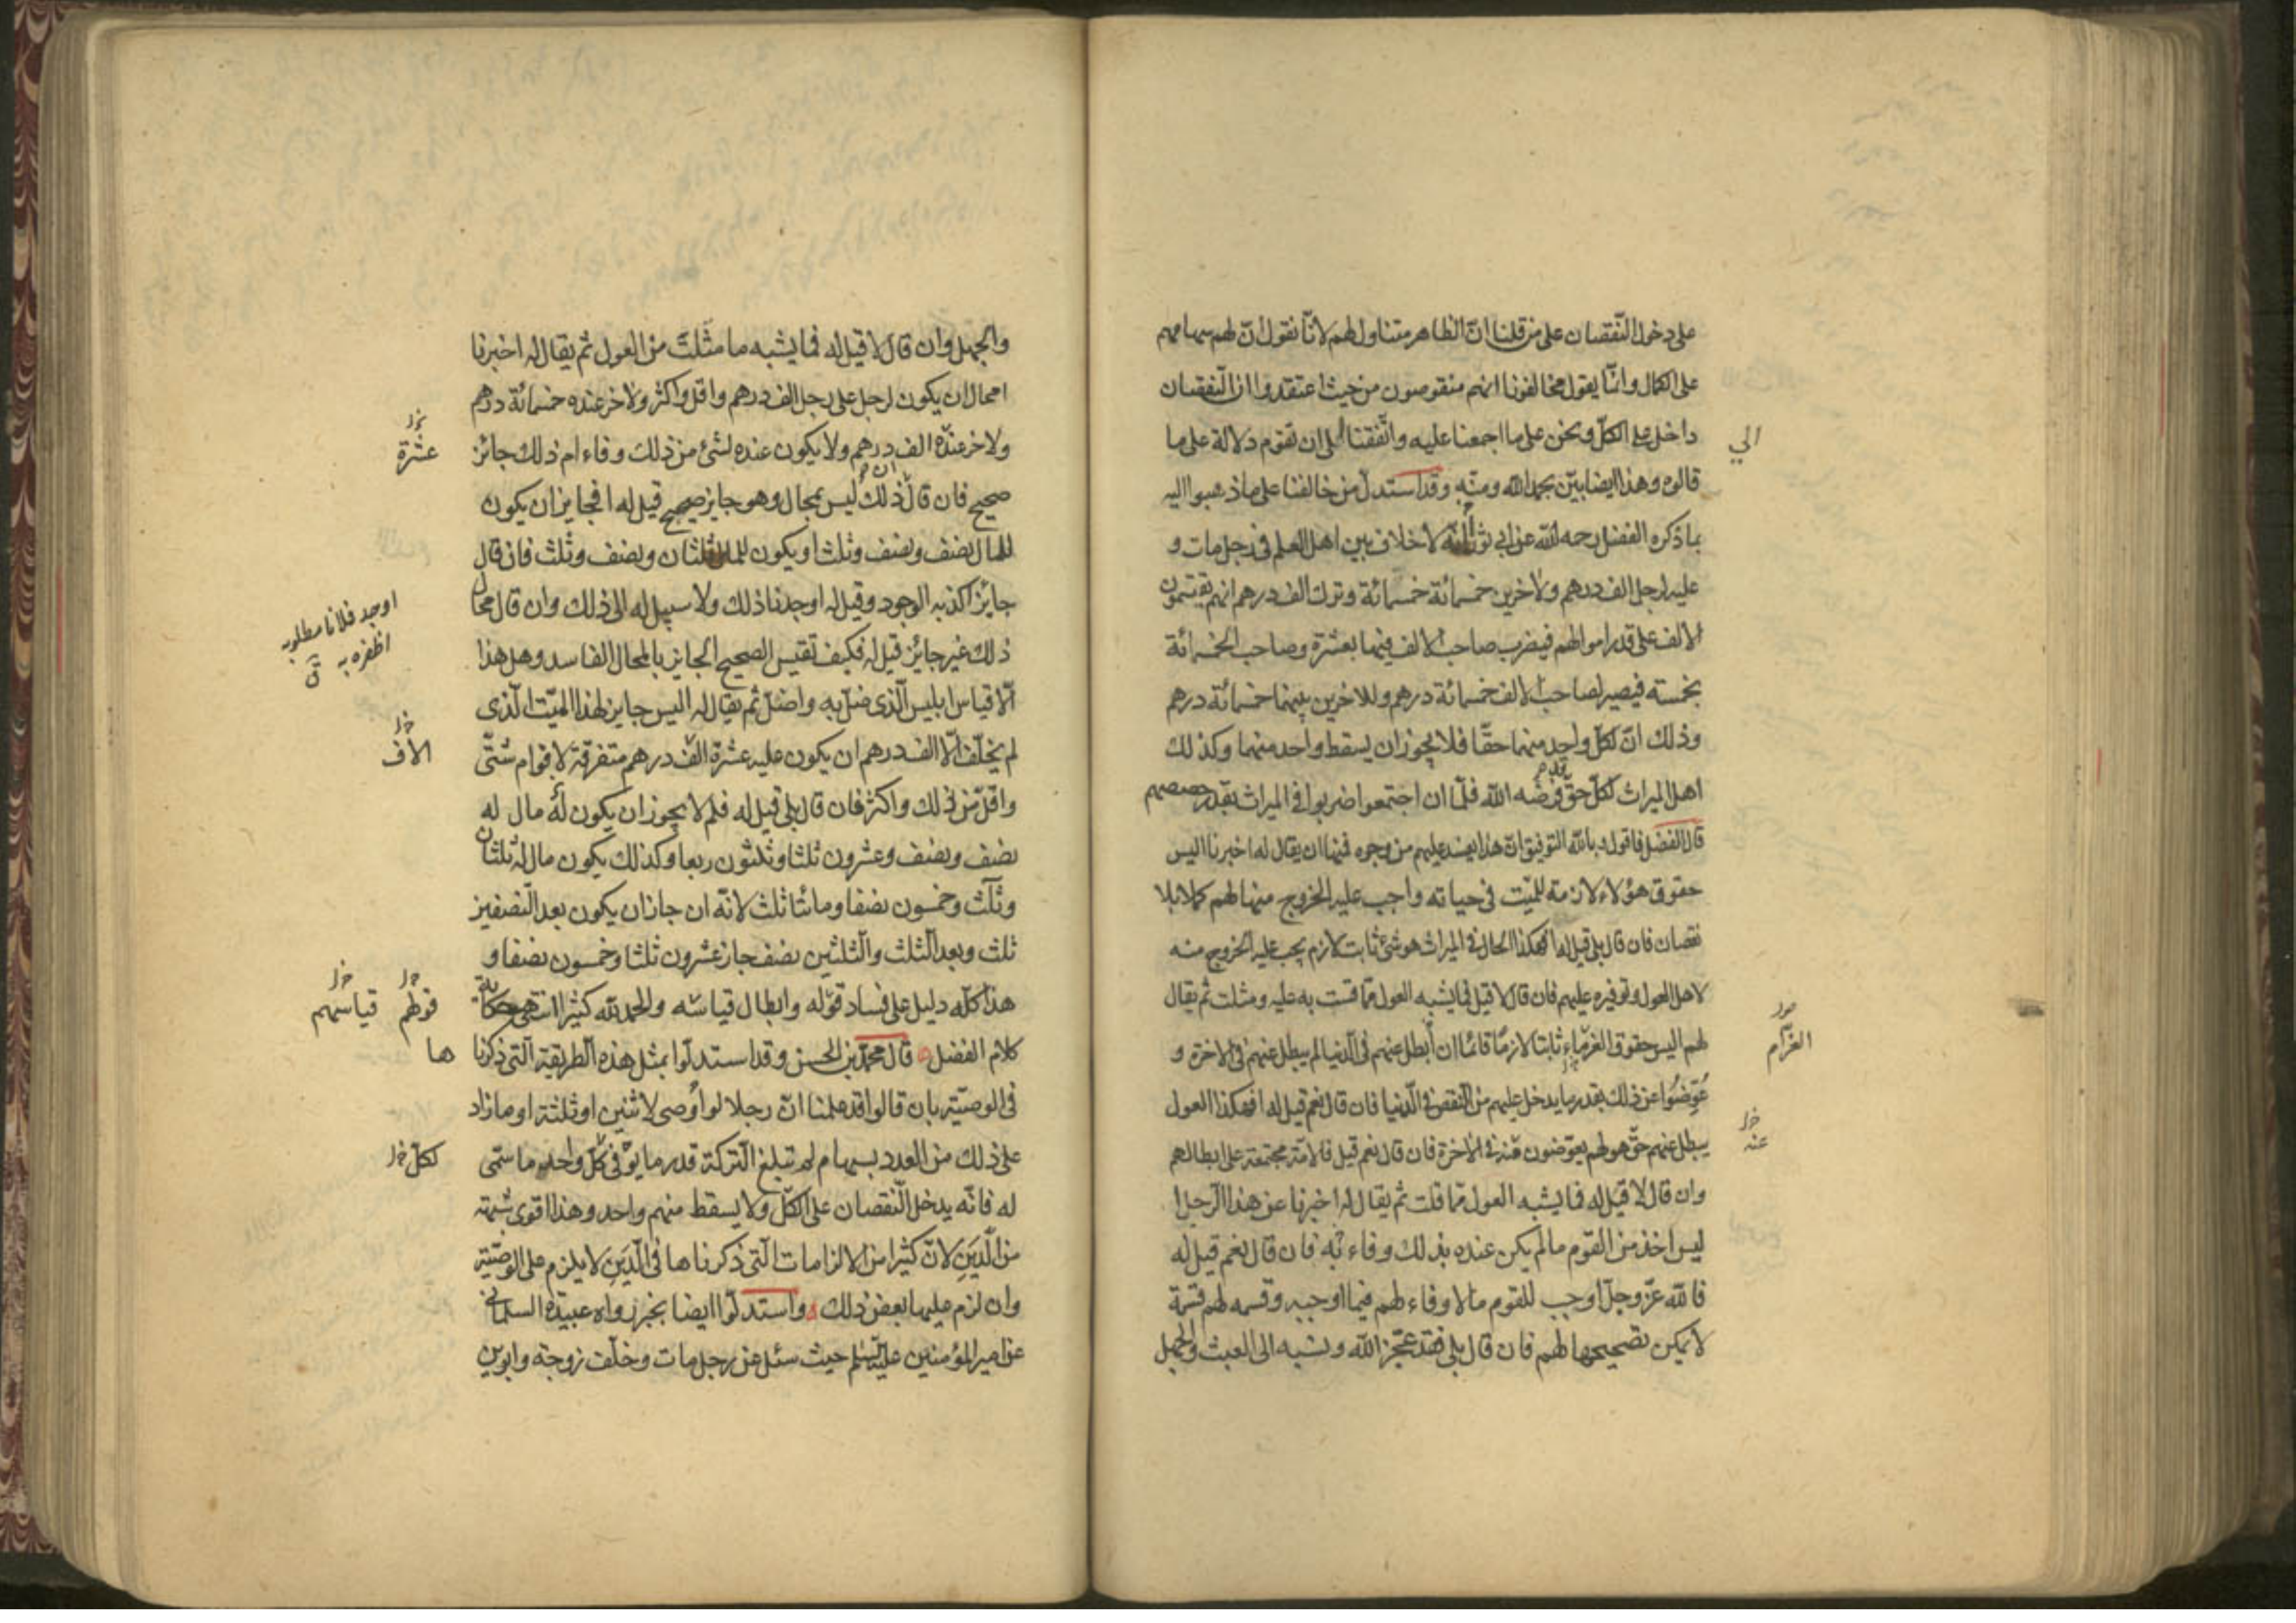 على دخول النّقصان على من قلنا انّ الظاهر متناول لهم لانّا نقول انّ لهم سهامهم
على الكمال وانّما يقول مخالفونا انهم منقوصون من حيث اعتقدوا ان النّقصان
داخل على الكلّ ونحن على ما اجمعنا عليه واتّفقنا الى ان تقوم دلالة على ما
الي
قالوه وهذا ايضا بيّن بحمد الله ومنّه وقد استدلّ من خالفنا على ما ذهبوا اليه
بما ذكره الفضل رحمه الله عن ابي ثور انّه لا خلاف بين اهل العلم في رجل مات و
عليه لرجل الف درهم ولاخرين خمسمائة خمسمائة وترك الف درهم انهم يقتسمون
الالف على قدر اموالهم فيضرب صاحب الالف فيها بعشرة وصاحب الخمسمائة
بخمسته فيصير لصاحب الالف خمسمائة درهم وللاخرين بينهما خمسمائة درهم
وذلك انّ لكلّ واحد منهما حقّا فلا يجوز ان يسقط واحد منهما وكذلك
اهل الميراث لكلّ حقّ فرضه الله فلمّا ان اجتمعوا ضربوا في الميراث بقدر حصصهم
قال الفضل فاقول وبالله التوفيق انّ هذا يفسد عليهم من وجوه فمنها ان يقال له اخبرنا اليس
حقوق هؤلاء لازمة للميّت في حياته واجب عليه الخروج منها لهم كملا بلا
نقصان فان قال بلى قيل له افهكذا الحال في الميراث هو شئ ثابت لازم يجب عليه الخروج منه
لاهل العول وتوفيره عليهم فان قال لا قيل فما يشبه العول ممّا قست به عليه ومثلت ثم يقال
لهم اليس حقوق الغرماء ثابتا لازمًا قائمًا ان أبطل عنهم في الدّنيا لم يبطل عنهم في الاخرة و
الغرّام
عُوِّضُوا عن ذلك بقدر ما يدخل عليهم من النّقص في الدّنيا فان قال نعم قيل له افهكذا العول
يبطل عنهم حقّ هو لهم يعوّضون منه في الاخرة فان قال نعم قيل فالامّة مجتمعة على ابطالهم
عنه
وان قال لا قيل له فما يشبه العول ممّا قلت ثم يقال له اخبرنا عن هذا الرجل ا
ليس اخذ من القوم ما لم يكن عنده بذلك وفاء به فان قال نعم قيل له
فالله عزّ وجلّ اوجب للقوم ما لا وفاء لهم فيما اوجبه وقسمه لهم قسمة
لا يمكن تصحيحها لهم فان قال بلى فقد عجّز الله ونسبه الى العبث والجهل
والجهل وان قال لا قيل له فما يشبه ما مثّلت من العول ثم يقال له اخبرنا
امحال ان يكون لرجل على رجل الف درهم واقل واكثر ولاخر عنده خمسمائة درهم
ولاخر عنده الف درهم ولا يكون عنده لشئ من ذلك وفاء ام ذلك جائز
عشرة
صحيح فان قال ذلك ليس بمحال وهو جايز صحيح قيل له افجايز ان يكون
للمال نصف ونصف وثلث او يكون للمال ثلثان ونصف وثلث فان قال
جايز اكذبه الوجود وقيل له اوجدنا ذلك ولا سبيل له الى ذلك وان قال محال
اوجد فلانا مطلوبه
اظفره به ق
ذلك غير جايز قيل له فكيف تقيس الصحيح الجايز بالمحال الفاسد وهل هذا
الّا قياس ابليس الّذي ضلّ به واضلّ ثم يقال له اليس جايز لهذا الميّت الّذي
لم يخلّف الّا الف درهم ان يكون عليه عشرة الف درهم متفرقة لاقوام شتّى
الاف
واقلّ من ذلك واكثر فان قال بلى قيل له فلم لا يجوز ان يكون له مال له
نصف ونصف وعشرون ثلثا وثلثون ربعا وكذلك يكون مال له ثلثان
وثلث وخمسون نصفا ومائتا ثلث لانّه ان جاز ان يكون بعد النّصفين
ثلث وبعد الثّلث والثّلثين نصف جاز عشرون ثلثا وخمسون نصفا و
هذا كلّه دليل على فساد قوله وابطال قياسه والحمد لله كثيرا انتهى حكاية
قولهم قياسهم
كلام الفضل قال محمّد بن الحسن وقد استدلّوا بمثل هذه الطريقة الّتي ذكرنا
ها
في الوصيّة بان قالوا قد علمنا انّ رجلا لو أوصى لاثنين او ثلثة او ما زاد
على ذلك من العدد بسهام لم تبلغ التّركة قدر ما يوفّي كلّ واحد ما سمّى
لكلّ
له فانّه يدخل النّقصان على الكلّ ولا يسقط منهم واحد وهذا اقوى شبهة
من الدَّين لانّ كثيرا من الالزامات الّتي ذكرناها في الدَّين لا يلزم على الوصيّة
وان لزم عليها بعض ذلك واستدلّوا ايضا بخبر رواه عبيدة السلماني
عن امير المؤمنين عليه السلم حيث سئل عن رجل مات وخلّف زوجة وابوين